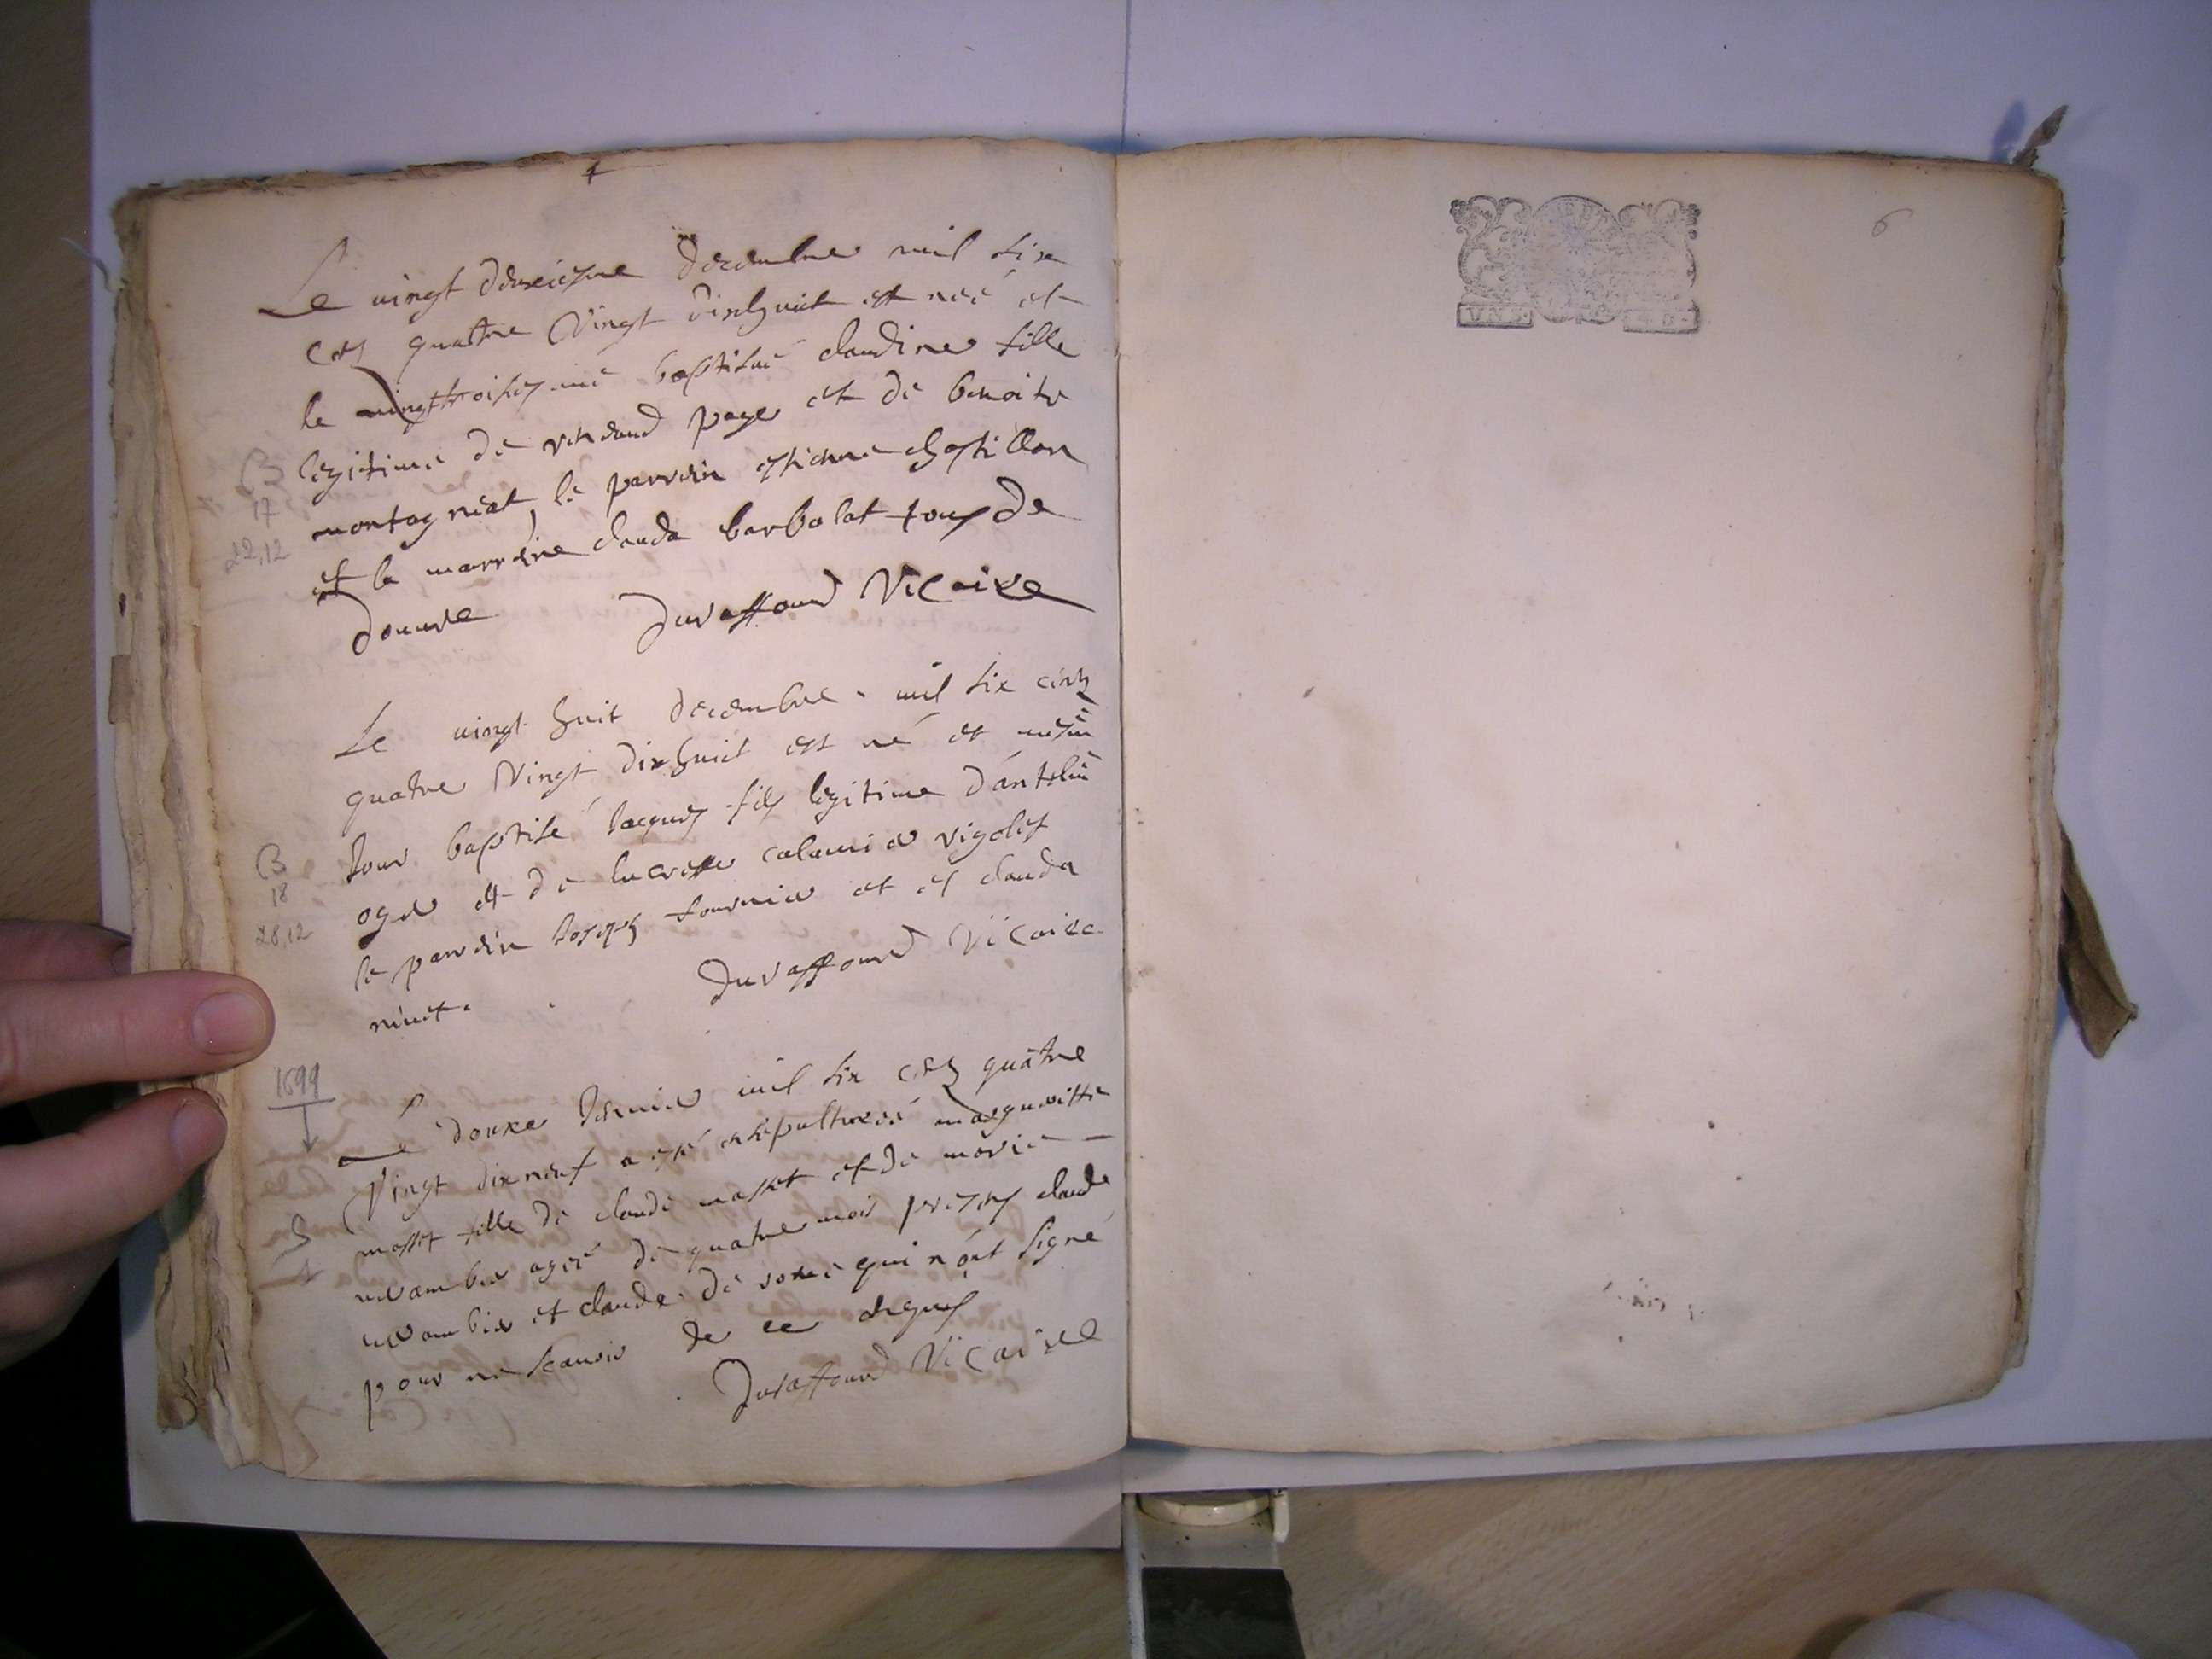 Le vingt deuxiesme decembre mil six
cens quatre vingt dixhuict est née et
le vingttroisiesme baptisée claudine fille
B
17
22,12
legitime de page et de benoite
montagniat, le parrein estienne chastillon
et la marreine clauda barbolat tous de
douure Duraffourd Vicaire
Le vingt huit decembre mil six cens
quatre vingt dixhuict est né et mesme
B
18
28,12
Jour baptisé Jacques fils legitime d'antelme
oger et de lucresse vigolet
le parrein Joseph fournier et et clauda
ninet. Duraffourd Vicaire
1699
Le douze Januier mil six cens quatre
vingt dixneuf a esté ensepulturée margueritte
S
1
masset fille de claude masset et de marie
agée de quatre mois presens claude
et claude qui n'ont signé
pour ne scauoir de ce enquis
Duraffourd Vicaire
6